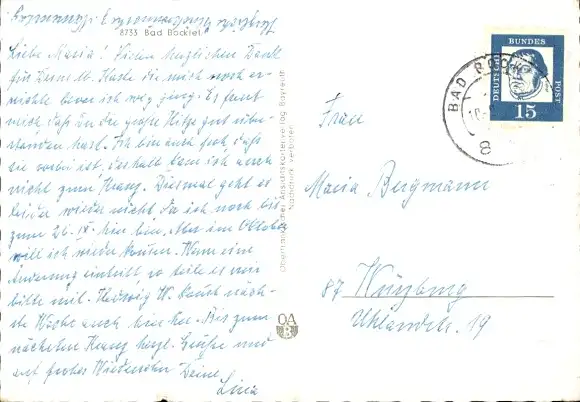 8733 Bad Bocklet
Liebe Maria! Vielen herzlichen Dank
für Deine lb. Karte die mich noch er-
reichte bevor ich weg ging. Es freut
mich, daß Du die große Hitze gut über-
standen hast. Ich bin auch froh, daß
sie vorbei ist, deshalb kam ich auch
nicht zum Kranz. Diesmal geht es
leider wieder nicht, da ich noch bis
zum 26. IX. hier bin. Aber im Oktober
will ich wieder kommen. Wenn eine
Änderung eintritt so teile es mir
bitte mit. Hedwig W. kommt näch-
ste Woche auch hier her. Bis zum
nächsten Kranz herzl. Grüße und
auf frohes Wiedersehn Deine
Lina
Oberfränkischer Ansichtskartenverlag Bayreuth
Nachdruck verboten
OA
DEUTSCHE
BUNDES
POST
15
BAD BOCK
8
Frau
Maria Bergmann
87 Würzburg
Uhlandstr. 19